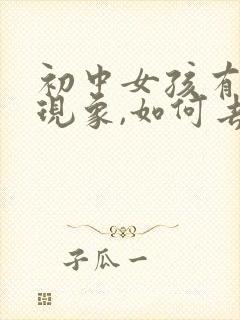 初中女孩有
现象,如何去
子瓜一